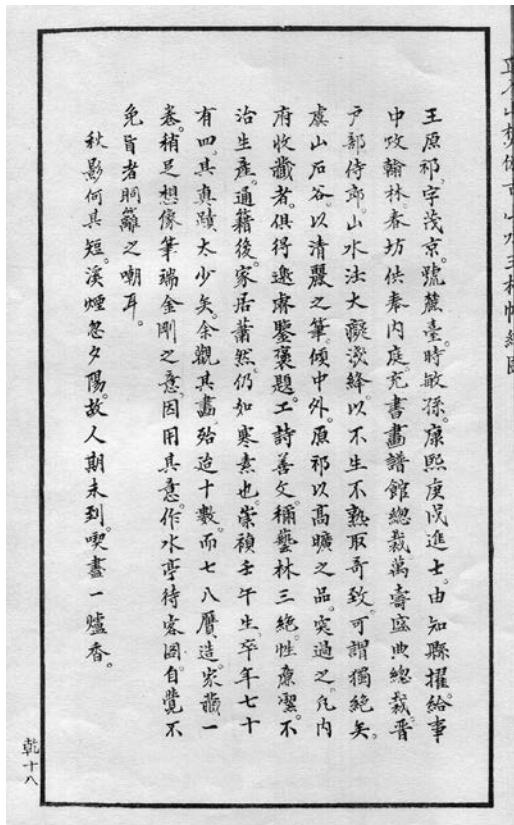 王原祁。字茂京。號麓臺。時敏孫。康熙庚戌進士。由知縣擢給事
中。改翰林。春坊供奉內庭。充書畫譜館總裁萬壽盛典總裁。晋
户部侍郎。山水法大癡淺絳。以不生不熟取奇致。可謂獨絕矣。
虞山石谷。以清麗之筆。傾中外。原祁以高曠之品。突過之。凡內
府收藏者。俱得邀睿鑒褒題。工詩善文。稱藝林三絕。性廉潔。不
治生產。通籍後。家居蕭然。仍如寒素也。崇禎壬午生。卒年七十
有四。其真蹟太少矣。余觀其畫。殆迨十數。而七八贋造。家藏一
卷。稍足想像筆端金剛之意。因用其意。作水亭待客圖。自覺不
免盲者胴籬之嘲耳。
秋影何其短。溪煙忽夕陽。故人期未到。喫盡一爐香。
乾十八